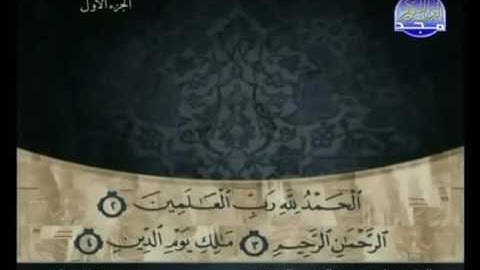 الجزء الأول
مجد
الْحَمْدُ لِلَّهِ رَبِّ الْعَالَمِينَ ٢
الرَّحْمَٰنِ الرَّحِيمِ ٣ مَالِكِ يَوْمِ الدِّينِ ٤